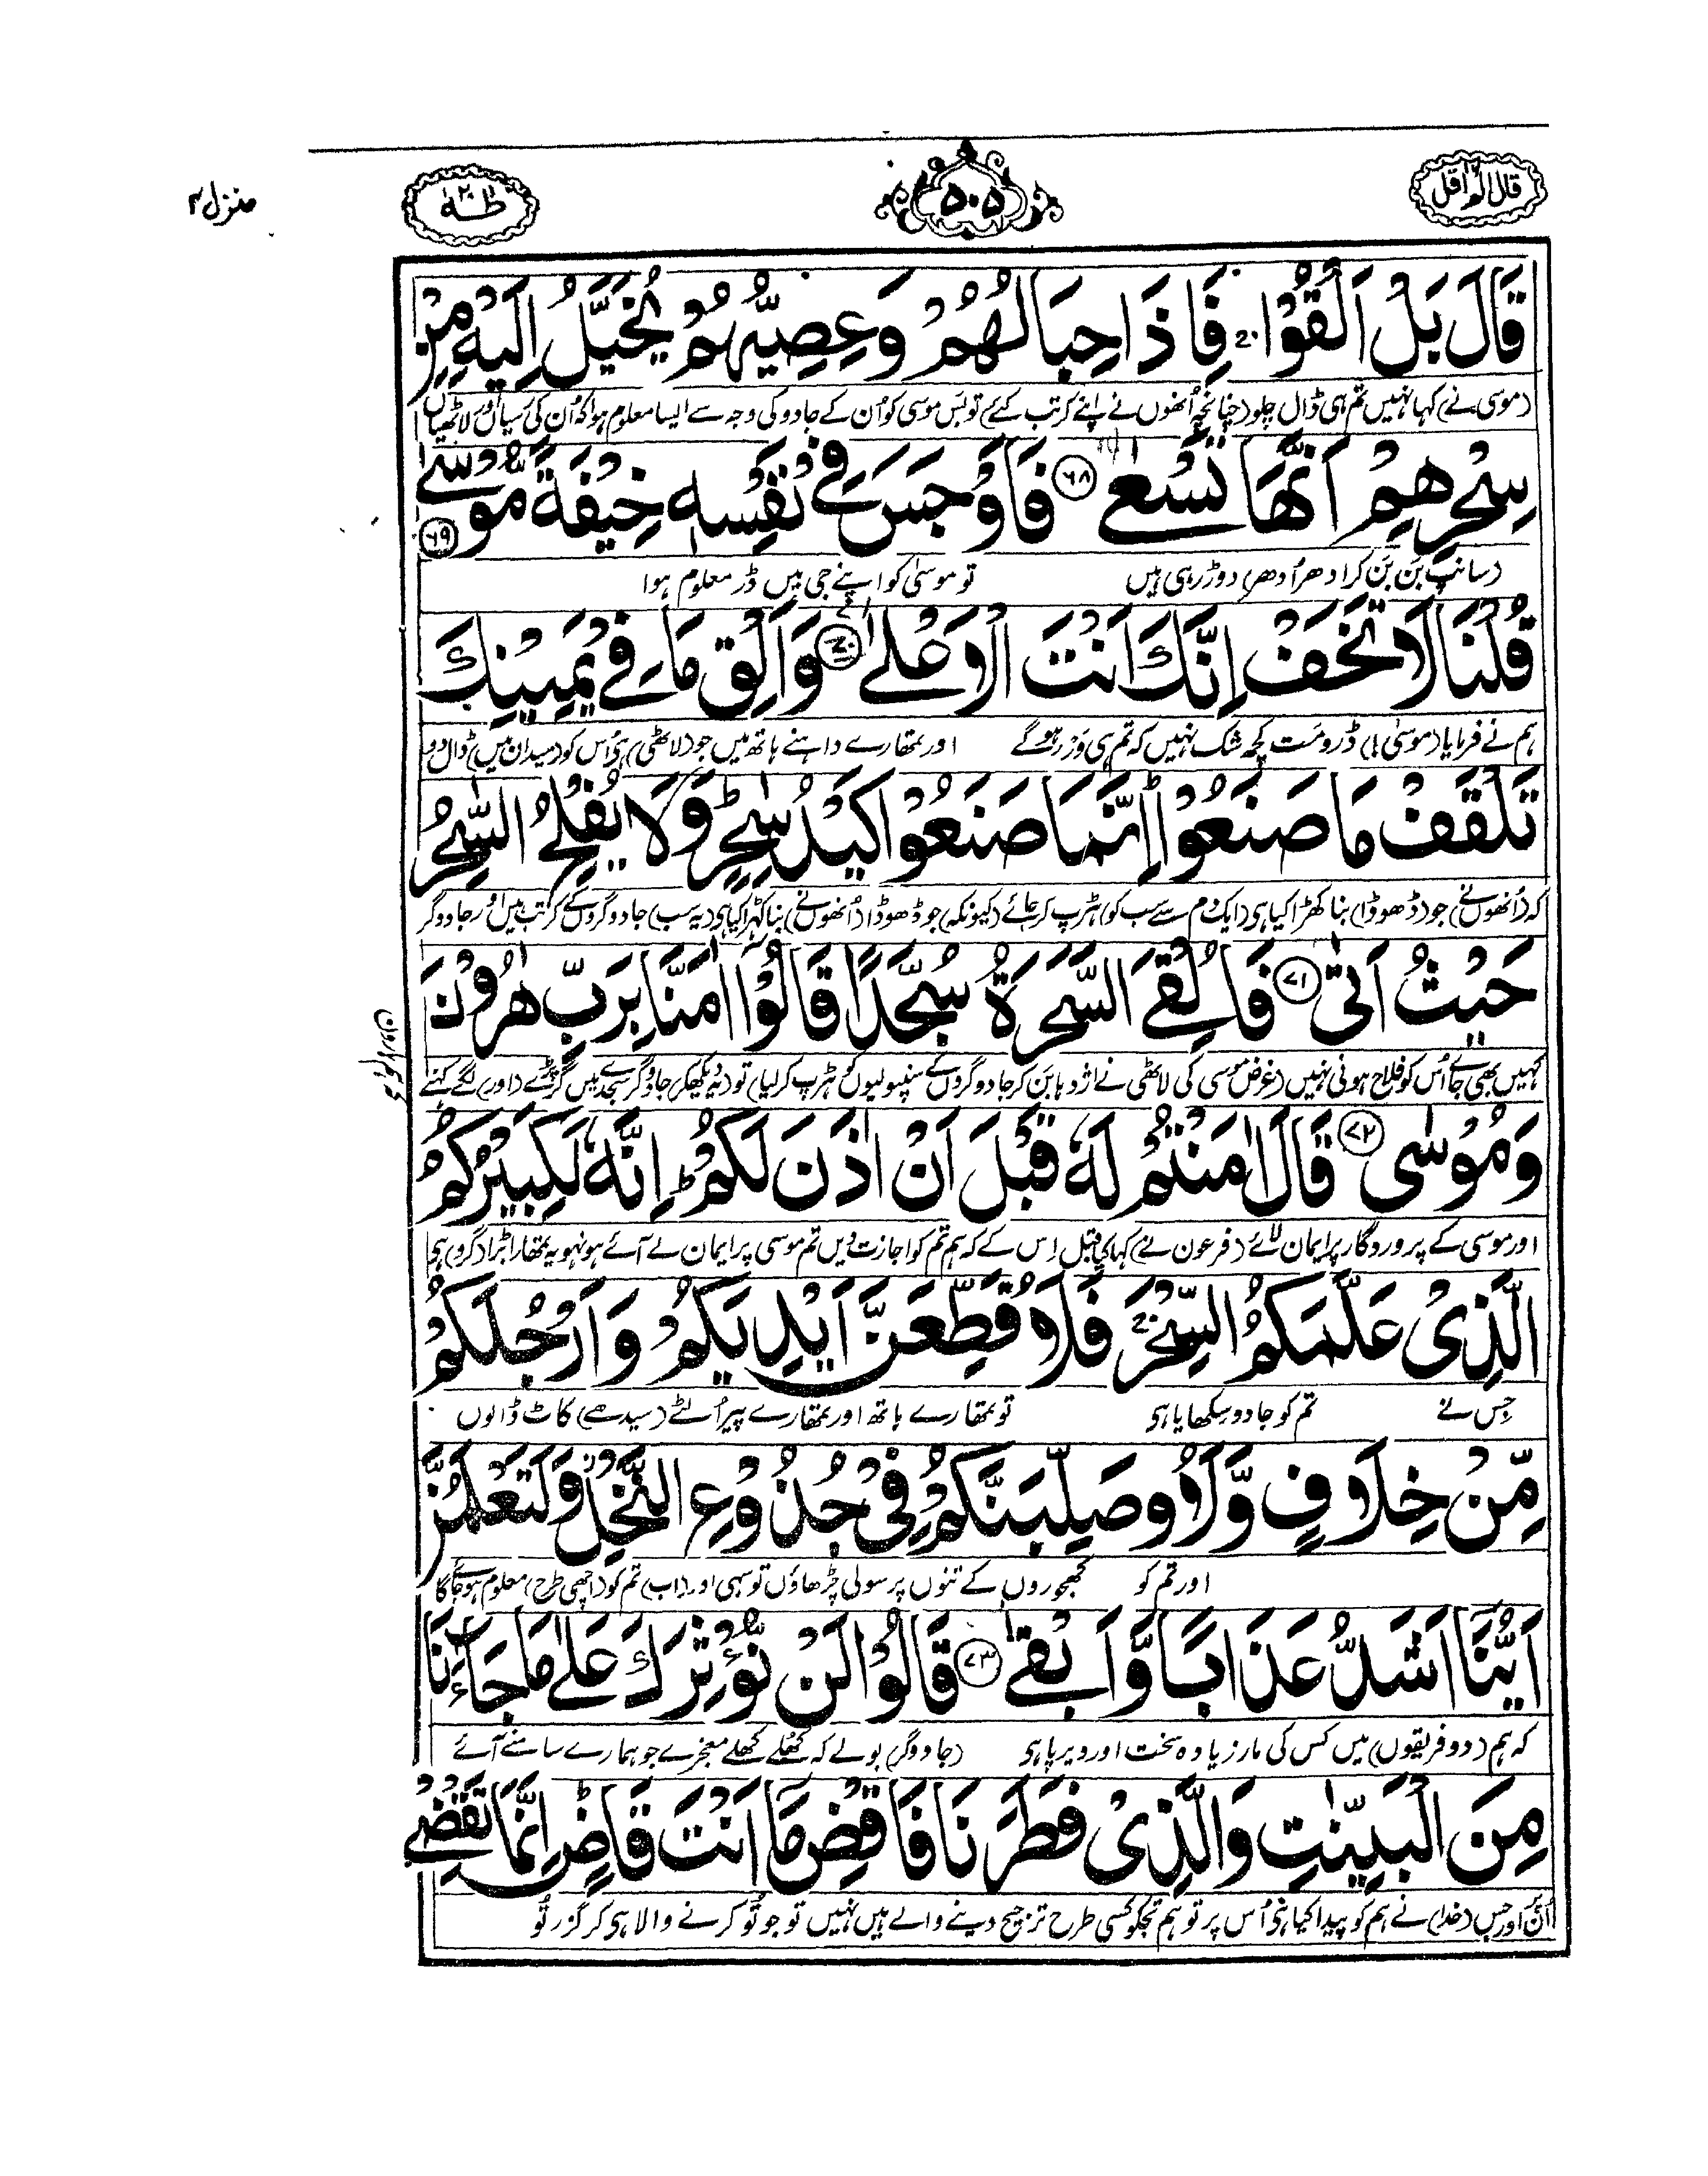 قال الم اقل
۵۰۵
طٰہٰ ۲۰
منزل ۴
قَالَ بَلْ اَلْقُوْا ۚ فَاِذَا حِبَالُهُمْ وَعِصِیُّهُمْ یُخَیَّلُ اِلَیْهِ مِنْ
(موسیٰ نے) کہا نہیں تم ہی ڈال چلو (چنانچہ اُنھوں نے اپنے کرتب کئے) تو بس موسی کو اُن کے جادو کی وجہ سے ایسا معلوم ہوا کہ اُن کی رسیاں اور لاٹھیاں
سِحْرِهِمْ اَنَّهَا تَسْعٰی ۶۸ فَاَوْجَسَ فِیْ نَفْسِهٖ خِیْفَةً مُّوْسٰی ۶۹
(سانپ بن بن کر ادھر اُدھر) دوڑ رہی ہیں تو موسیٰ کو اپنے جی میں ڈر معلوم ہوا
قُلْنَا لَا تَخَفْ اِنَّكَ اَنْتَ الْاَعْلٰی ۷۰ وَاَلْقِ مَا فِیْ یَمِیْنِكَ
ہم نے فرمایا (موسیٰ!) ڈرو مت کچھ شک نہیں کہ تم ہی ور رہو گے اور تمھارے داہنے ہاتھ میں جو (لاٹھی) ہی اُس کو (میدان میں) ڈال دو
تَلْقَفْ مَا صَنَعُوْا ؕ اِنَّمَا صَنَعُوْا كَیْدُ سٰحِرٍ ؕ وَلَا یُفْلِحُ السّٰحِرُ
کہ (اُنھوں نے) جو (ڈھوڈا) بنا کھڑا کیا ہی (ایک دم سے سب کو) ہڑپ کر جائے (کیونکہ) جو ڈھوڈا (اُنھوں نے) بنا کھڑا کیا ہی (یہ سب) جادوگروں کے کرتب ہیں اور جادوگر
حَیْثُ اَتٰی ۷۱ فَاُلْقِیَ السَّحَرَةُ سُجَّدًا قَالُوْٓا اٰمَنَّا بِرَبِّ هٰرُوْنَ
کہیں بھی جائے اُس کو فلاح ہونی نہیں (غرض موسی کی لاٹھی نے اژدہا بن کر جادوگروں کے سنپولیوں کو ہڑپ کر لیا) تو (یہ دیکھکر) جادوگر سجدے میں گر پڑے (اور) لگے کہنے
کہ ہم ہارون
وَمُوْسٰی ۷۲ قَالَ اٰمَنْتُمْ لَهٗ قَبْلَ اَنْ اٰذَنَ لَكُمْ ؕ اِنَّهٗ لَكَبِیْرُكُمُ
اور موسی کے پروردگار پر ایمان لائے (فرعون نے) کہا کیا قبل اِس کے کہ ہم تم کو اجازت دیں تم موسی پر ایمان لے آئے ہو نہو یہ تمھارا بڑا (گرو) ہی
الَّذِیْ عَلَّمَكُمُ السِّحْرَ ۚ فَلَاُقَطِّعَنَّ اَیْدِیَكُمْ وَاَرْجُلَكُمْ
جس نے تم کو جادو سکھایا ہی تو تمھارے ہاتھ اور تمھارے پیر اُلٹے (سیدھے) کاٹ ڈالوں
مِّنْ خِلَافٍ وَّلَاُوصَلِّبَنَّكُمْ فِیْ جُذُوْعِ النَّخْلِ ؗ وَلَتَعْلَمُنَّ
اور تم کو کھجوروں کے تنوں پر سولی چڑھاؤں تو سہی اور (اب) تم کو (اچھی طرح) معلوم ہو جائیگا
اَیُّنَاۤ اَشَدُّ عَذَابًا وَّاَبْقٰی ۷۳ قَالُوْا لَنْ نُّؤْثِرَكَ عَلٰی مَا جَآءَنَا
کہ ہم (دو فریقوں) میں کس کی مار زیادہ سخت اور دیر پا ہی (جادوگر) بولے کہ کھلے کھلے معجزے جو ہمارے سامنے آئے
مِنَ الْبَیِّنٰتِ وَالَّذِیْ فَطَرَنَا فَاقْضِ مَاۤ اَنْتَ قَاضٍ ؕ اِنَّمَا تَقْضِیْ
اُن اور جس (خدا) نے ہم کو پیدا کیا ہی اُس پر تو ہم تجکو کسی طرح ترجیح دینے والے ہیں نہیں تو جو تو کرنے والا ہی کر گزر تو